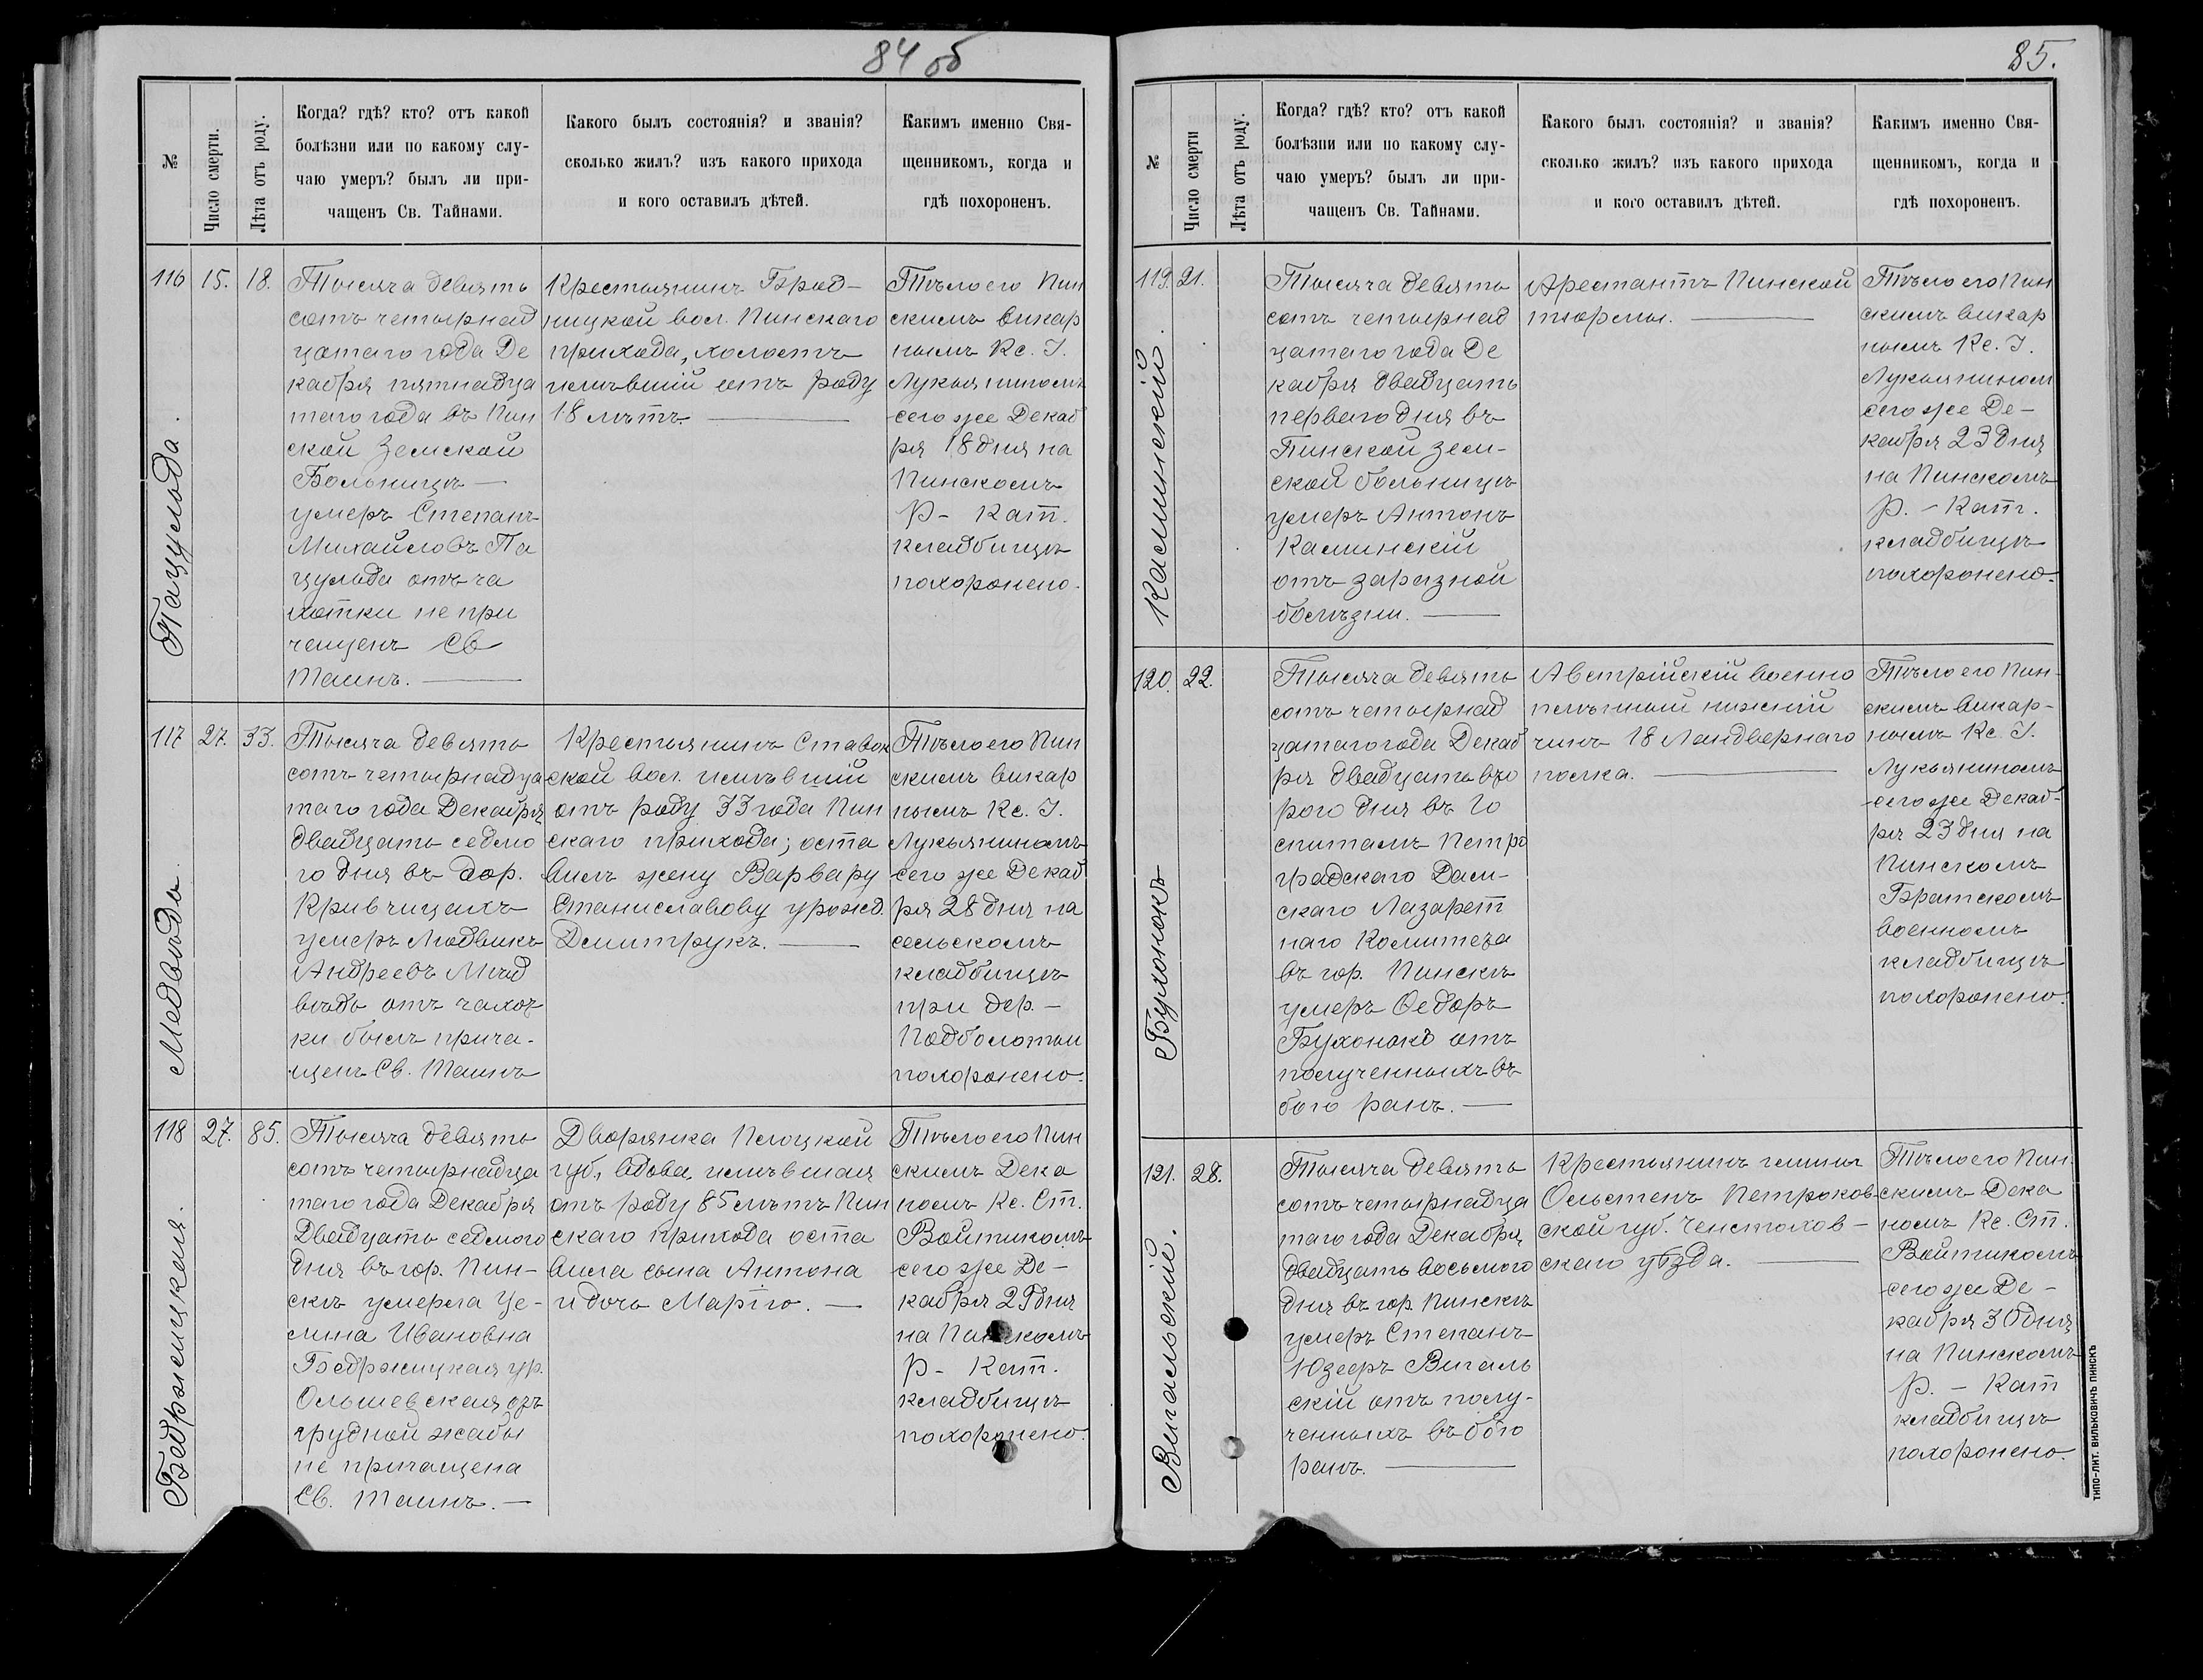 84 об
№
Число смерти.
Лѣта отъ роду.
Когда? гдѣ? кто? отъ какой
болѣзни или по какому слу-
чаю умеръ? былъ ли при-
чащенъ Св. Тайнами.
Какого былъ состоянія? и званія?
сколько жилъ? изъ какого прихода
и кого оставилъ дѣтей.
Какимъ именно Свя-
щенникомъ, когда и
гдѣ похороненъ.
116
Пацульда.
15.
18.
Тысяча девять
сотъ четырнад
цатаго года Де
кабря пятнадца
таго года въ Пин
ской Земской
Больницѣ —
умеръ Степанъ
Михайловъ Па
цульда отъ ча
хотки не при
чащенъ Св
Таинъ. —
Крестьянинъ Брод-
ницкой вол. Пинскаго
прихода, холостъ
имѣвшій отъ роду
18 лѣтъ. —
Тѣло его Пин
скимъ викар
нымъ Кс. I.
Лукьяниномъ
сего же Декаб
ря 18 дня на
Пинскомъ
Р- Кат.
кладбищѣ
похоронено.
117
Медвѣдь.
27.
33.
Тысяча девять
сотъ четырнадца
таго года Декабря
двадцать седмо
го дня въ дер.
Кривчицахъ
умеръ Людвикъ
Андреевъ Мед
вѣдь отъ чахот
ки былъ прича-
щенъ Св. Таинъ
Крестьянинъ Ставок
ской вол. имѣвшій
отъ роду 33 года Пин
скаго прихода; оста
вилъ жену Варвару
Станиславову урожд.
Дмитрукъ. —
Тѣло его Пин
скимъ викар
нымъ Кс. I.
Лукьяниномъ
сего же Декаб
ря 28 дня на
сельскомъ
кладбищѣ
при дер. —
Подболотьи
похоронено.
118
Бедржицкая.
27.
85.
Тысяча девять
сотъ четырнадца
таго года Декабря
Двадцать седмого
дня въ гор. Пин-
скѣ умерла Це-
лина Ивановна
Бедржицкая ур.
Ольшевская отъ
грудной жабы
не причащена
Св. Таинъ. —
Дворянка Плоцкой
губ. вдова, имѣвшая
отъ роду 85 лѣтъ Пин
скаго прихода оста
вила сына Антона
и дочь Марію. —
Тѣло его Пин
скимъ Дека
номъ Кс. Ст.
Войтикомъ
сего же Де-
кабря 29 дня
на Пинскомъ
Р- Кат.
кладбищѣ
похоронено.
85.
№
Число смерти
Лѣта отъ роду.
Когда? гдѣ? кто? отъ какой
болѣзни или по какому слу-
чаю умеръ? былъ ли при-
чащенъ Св. Тайнами.
Какого былъ состоянія? и званія?
сколько жилъ? изъ какого прихода
и кого оставилъ дѣтей.
Какимъ именно Свя-
щенникомъ, когда и
гдѣ похороненъ.
119.
Каминскій.
21.
Тысяча девять
сотъ четырнад
цатаго года Де
кабря двадцать
перваго дня въ
Пинской зем-
ской больницѣ
умеръ Антонъ
Каминскій
отъ заразной
болѣзни. —
Арестантъ Пинской
тюрьмы. —
Тѣло его Пин
скимъ викар
нымъ Кс. I.
Лукьяниномъ
сего же Де-
кабря 23 дня
на Пинскомъ
Р. - Кат.
кладбищѣ
похоронено.
120.
Бухонокъ
22.
Тысяча девять
сотъ четырнад
цатаго года Декаб
ря двадцать вто
рого дня въ Го
спиталѣ Петро
градскаго Дам-
скаго Лазарет
наго Комитета
въ гор. Пинскѣ
умеръ Ѳедоръ
Бухонокъ отъ
полученныхъ въ
бою ранъ. —
Австрійскій военно
плѣнный нижній
чинъ 18 Ландвернаго
полка. —
Тѣло его Пин-
скимъ викар-
нымъ Кс. I.
Лукьяниномъ
сего же Декаб-
ря 23 дня на
Пинскомъ
Братскомъ
военномъ
кладбищѣ
похоронено.
121.
Вигальскій.
28.
Тысяча девять
сотъ четырнадца
таго года Декабря
двадцать восьмого
дня въ гор. Пинскѣ
умеръ Степанъ
Юзефъ Вигаль
скій отъ полу-
ченныхъ въ бою
ранъ. —
Крестьянинъ гмины
Ольстенъ Петроков-
ской губ. Ченстохов-
скаго уѣзда. —
Тѣло его Пин-
скимъ Дека
номъ Кс. Ст.
Войтикомъ
сего же Де-
кабря 30 дня
на Пинскомъ
Р. - Кат
кладбищѣ
похоронено.
ТИПО-ЛИТ. ВИЛЬКОВИЧЪ ПИНСКЪ